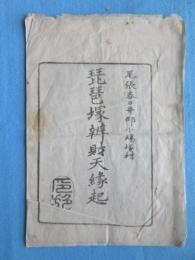 尾張春日井郡小場塚村
琵琶塚辨財天縁起